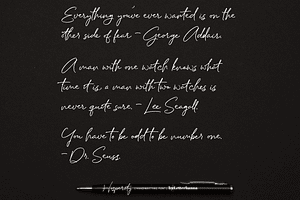 Everything you've ever wanted is on the
other side of fear – George Addair.
A man with one watch knows what
time it is, a man with two watches is
never quite sure. – Lee Seagall
You have to be odd to be number one.
– Dr. Seuss